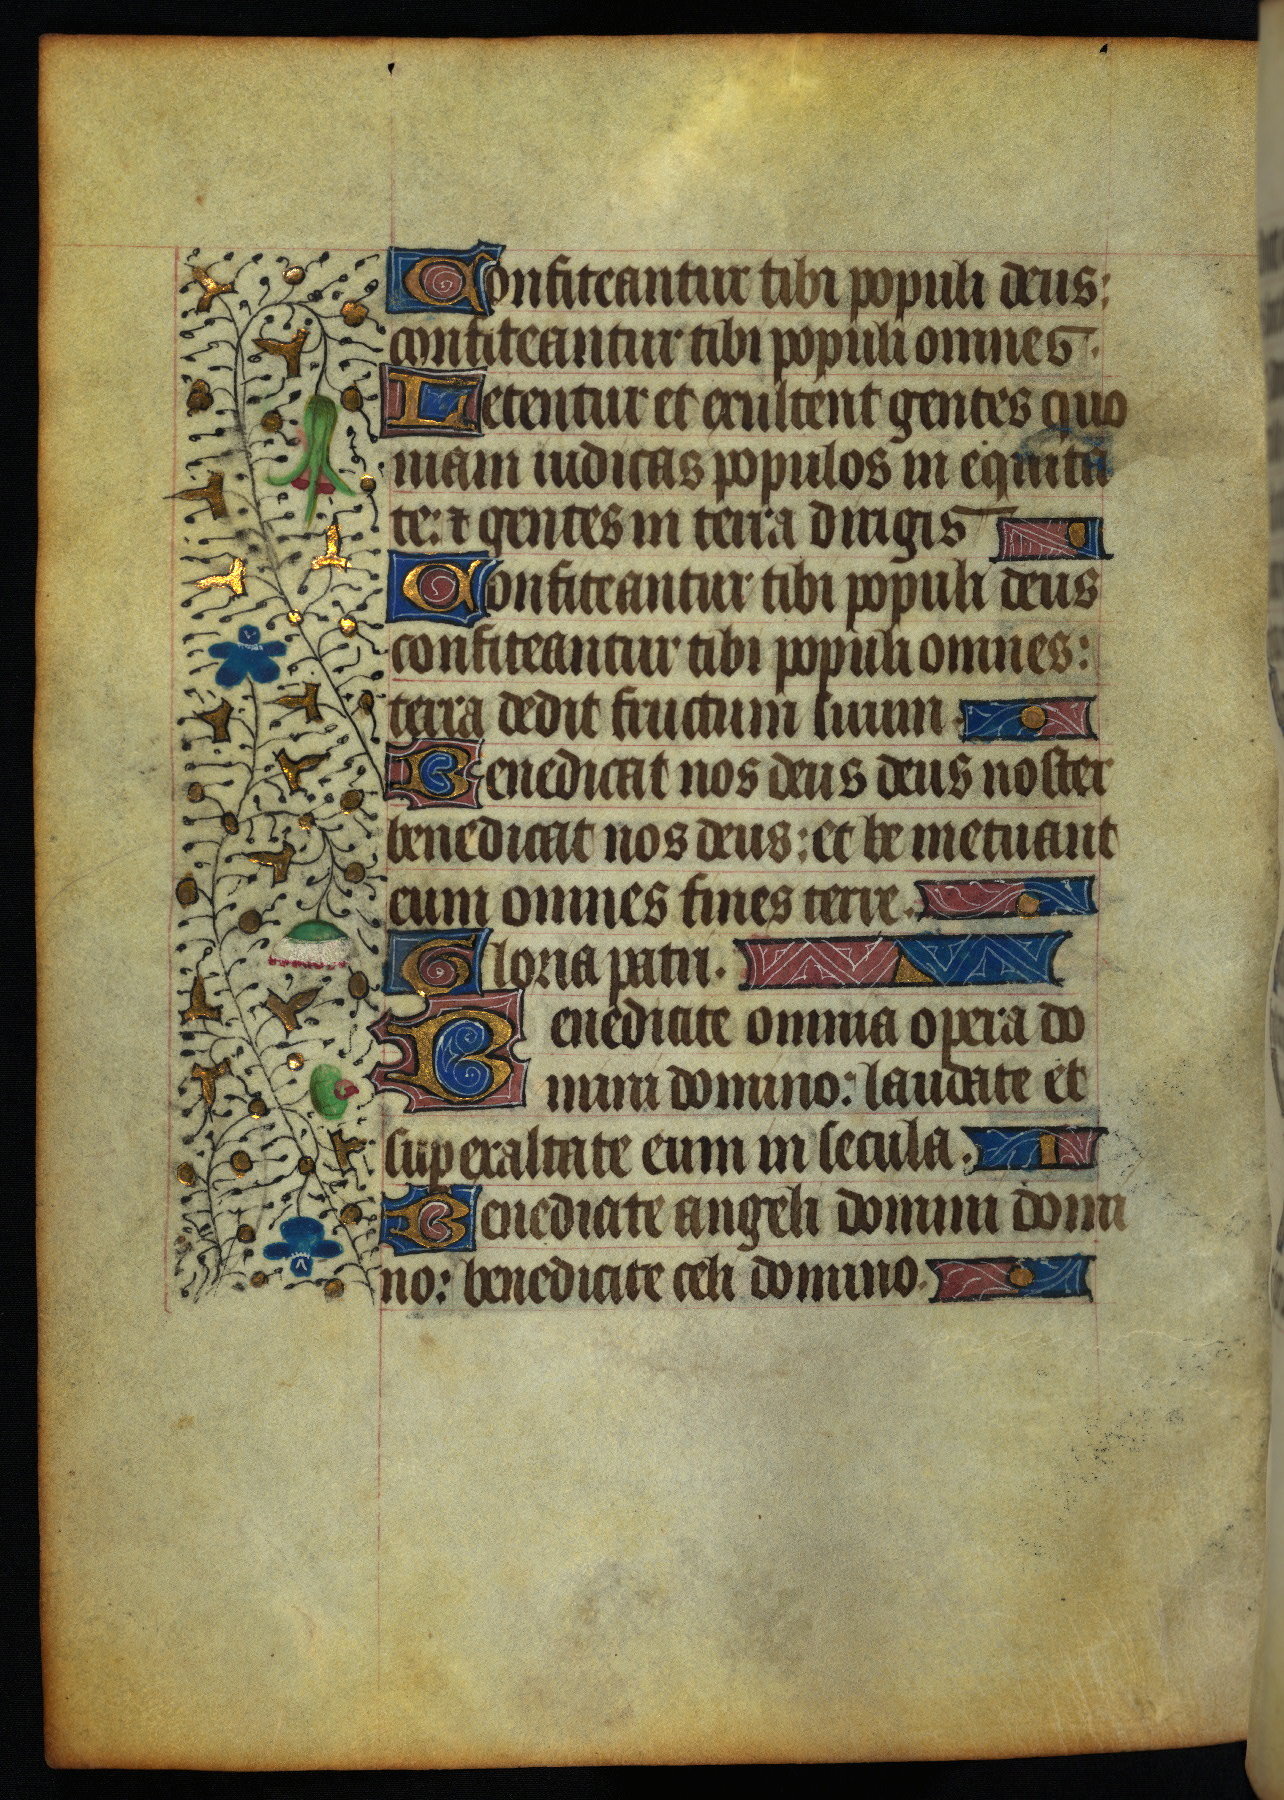 Confiteantur tibi populi deus:
confiteantur tibi populi omnes.
Letentur et exultent gentes quo
niam iudicas populos in equita
te: ⁊ gentes in terra dirigis
Confiteantur tibi populi deus
confiteantur tibi populi omnes:
terra dedit fructum suum.
Benedicat nos deus deus noster
benedicat nos deus: et be metuant
eum omnes fines terre.
Gloria patri.
Benedicite omnia opera do
mini domino: laudate et
superaltate eum in secula.
Benedicite angeli domini domi
no: benedicite celi domino.